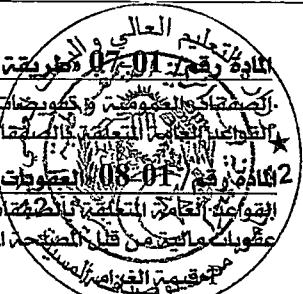 التعليم العالي و البحث
المادة رقم 01-07 طريقة
الصفقات العمومية و تفويضات
القواعد العامة المتعلقة بالصفقات
المادة رقم 01-08 العقوبات
القواعد العامة المتعلقة بالصفقات
عقوبات مالية من قبل المصلحة ا